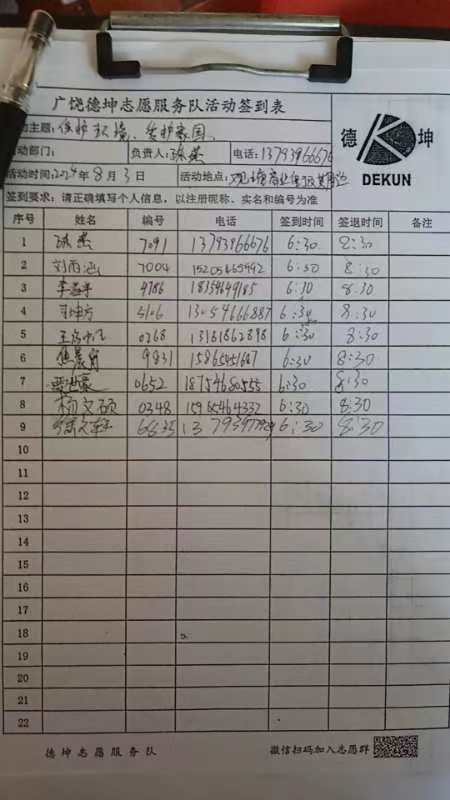 广饶德坤志愿服务队活动签到表
主题：保护环境、爱护家园
德 坤
DEKUN
动部门： 负责人：陈燕 电话：13793966676
活动时间：2024年8月3日 活动地点：
签到要求：请正确填写个人信息，以注册昵称、实名和编号为准
序号 姓名 编号 电话 签到时间 签退时间 备注
1 陈燕 7091 13793966676 6:30 8:30
2 刘雨涵 7004 15205465992 6:30 8:30
3 4786 18354649185 6:30 8:30
4 5106 13054666887 6:30 8:30
5 0268 13181862898 6:30 8:30
6 9831 6:30 8:30
7 0652 18754680555 6:30 8:30
8 杨文硕 0348 15965464332 6:30 8:30
9 6635 6:30 8:30
10
11
12
13
14
15
16
17
18
19
20
21
22
德坤志愿服务队 微信扫码加入志愿群